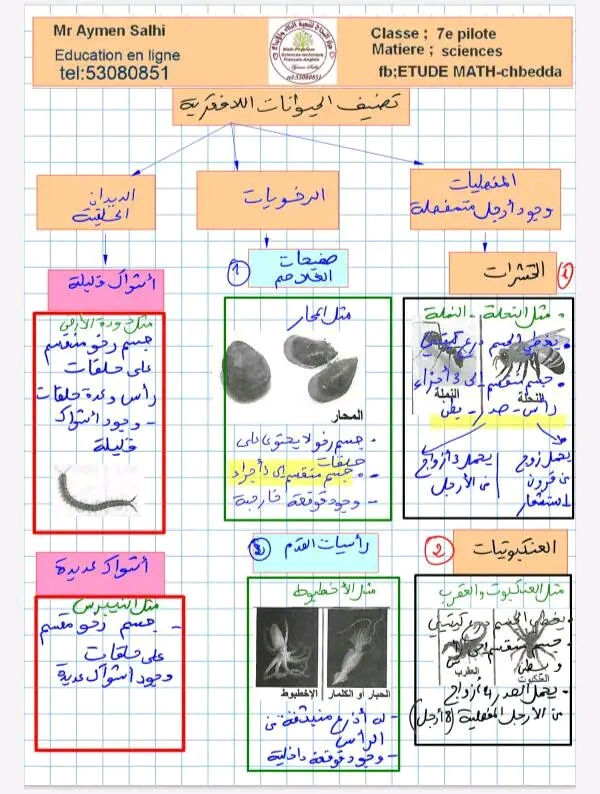 Mr Aymen Salhi
Education en ligne
tel:53080851
Classe ; 7e pilote
Matiere ; sciences
fb;ETUDE MATH-chbedda
تصنيف الحيوانات اللافقرية
المفصليات
وجود أرجل متمفصلة
الرخويات
الديدان
الحلقية
1
الحشرات
مثل النحلة - النملة
يغطي الجسم درع كيتيني
النحلة
النملة
جسم منقسم إلى 3 أجزاء
رأس - صدر - بطن
يحمل زوج
من قرون
استشعار
يحمل 3 أزواج
من الأرجل
2
العنكبوتيات
مثل العنكبوت والعقرب
يغطي الجسم درع كيتيني
جسم منقسم إلى
و بطن
العقرب
العنكبوت
يحمل الصدر 4 أزواج
من الأرجل المفصلية (8 أرجل)
1
صفيحات
الغلاصم
مثل المحار
المحار
جسم رخو لا يحتوي على
حلقات
جسم منقسم إلى أجزاء
وجود قوقعة خارجية
رأسيات القدم
مثل الأخطبوط
الإخطبوط
الحبار أو الكلمار
له أذرع منبثقة من
الرأس
وجود قوقعة داخلية
أشواك قليلة
مثل دودة الأرض
جسم رخو منقسم
على حلقات
رأس وعدة حلقات
- وجود أشواك
قليلة
أشواك عديدة
مثل النييريس
- جسم رخو مقسم
على حلقات
وجود أشواك عديدة